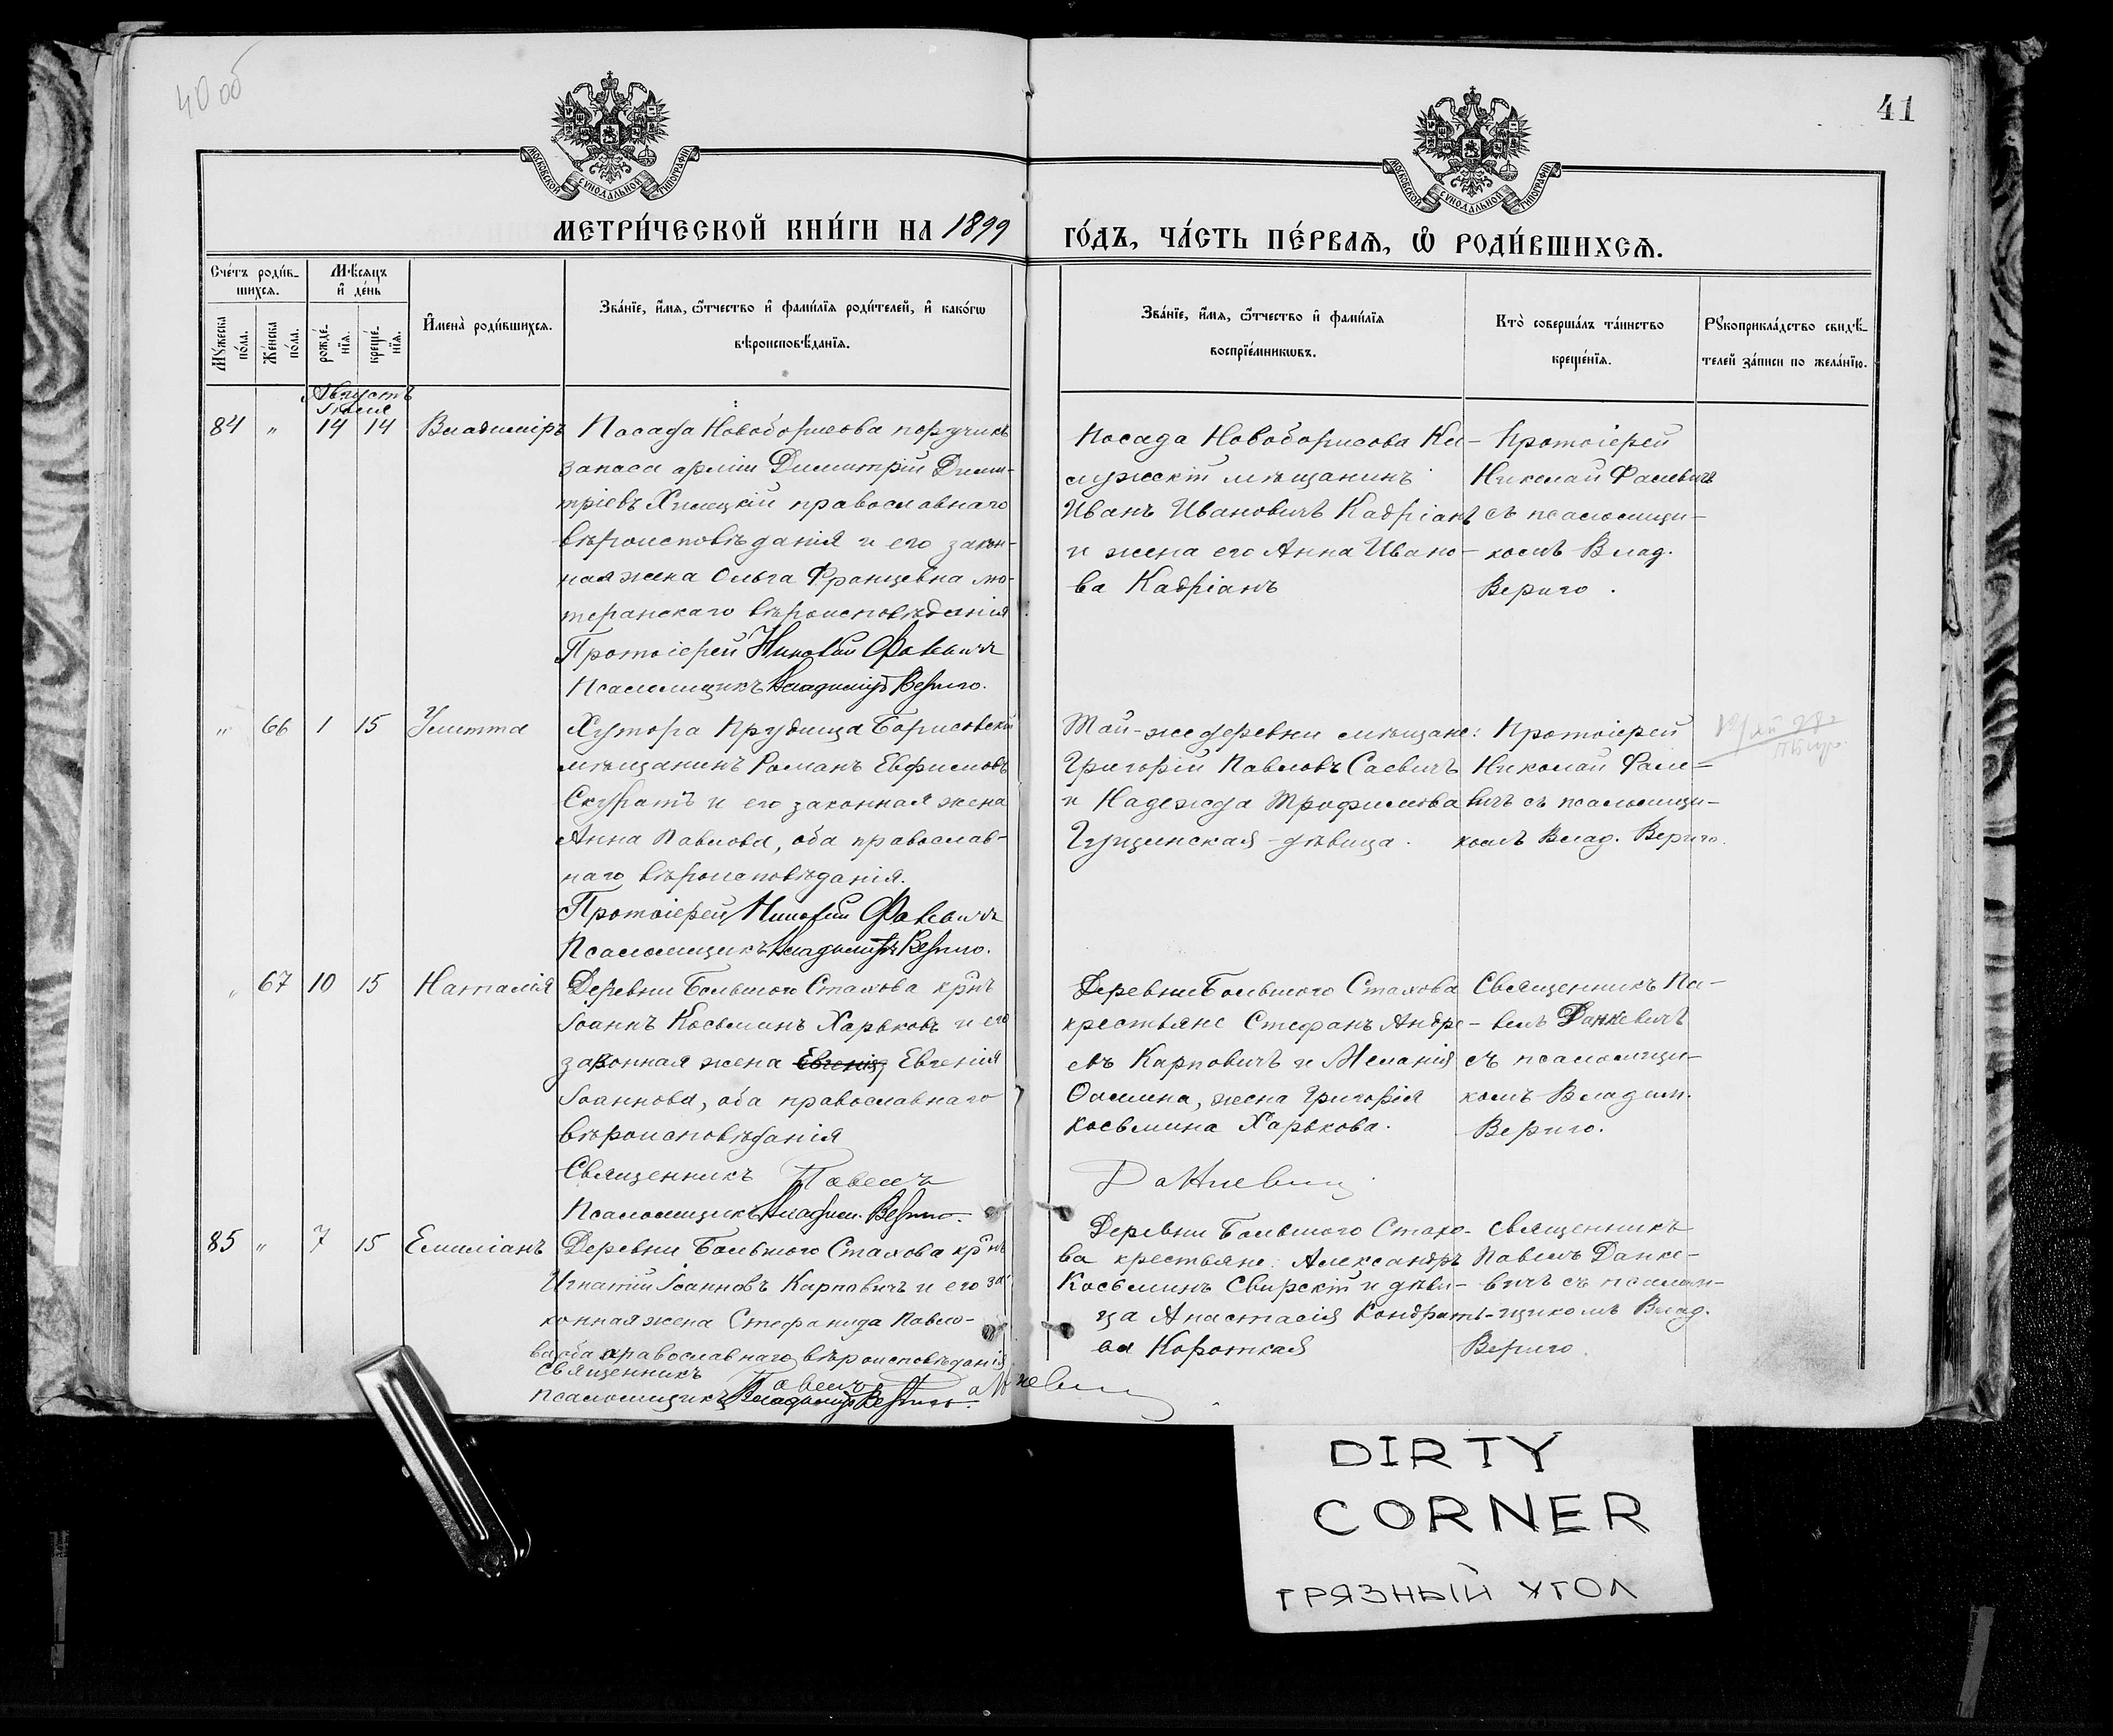 40 об
41
МОСКОВСКОЙ СѴНОДАЛЬНОЙ ТИПОГРАФІИ
МОСКОВСКОЙ СѴНОДАЛЬНОЙ ТИПОГРАФІИ
МЕТРИ́ЧЕСКОЙ КНИ́ГИ НА 1899
ГО́ДЪ, ЧА́СТЬ ПЕ́РВАѦ, Ѡ РОДИ́ВШИХСѦ.
Сче́тъ роди́в-
шихсѧ.
Мꙋ́жеска по́ла.
Же́нска по́ла.
Мѣ́сѧцъ
и҆ де́нь
рожде́-
нїѧ.
креще́-
нїѧ.
И҆мена̀ роди́вшихсѧ.
Зва́нїе, и҆́мѧ, ѻ҆́тчество и҆ фами́лїѧ роди́телей, и҆ како́гѡ
вѣроисповѣ́данїѧ.
Зва́нїе, и҆́мѧ, ѻ҆́тчество и҆ фами́лїѧ
воспрїе́мникѡвъ.
Кто̀ соверша́лъ та́инство
креще́нїѧ.
Рꙋкоприкла́дство свидѣ́-
телей за́писи по жела́нїю.
Августъ
84 " 14 14 Владиміръ
Посада Новоборисова поручикъ
запаса арміи Димитрій Дими-
тріевъ Хмецкій православнаго
вѣроисповѣданія и его закон-
ная жена Ольга Францевна лю-
теранскаго вѣроисповѣданія
Протоіерей Николай Фалевичъ
Псаломщикъ Владиміръ Вериго.
Посада Новоборисова Ка-
лужскій мѣщанинъ
Иванъ Ивановичъ Кадріанъ
и жена его Анна Ивано-
ва Кадріанъ
Протоіерей
Николай Фалевичъ
съ псаломщи-
комъ Влад.
Вериго.
" 66 1 15 Улитта
Хутора Прудища Борисовскій
мѣщанинъ Романъ Евфимовъ
Скуратъ и его законная жена
Анна Павлова, оба православ-
наго вѣроисповѣданія.
Протоіерей Николай Фалевичъ
Псаломщикъ Владиміръ Вериго.
Той-же деревни мѣщане:
Григорій Павловъ Саевичъ
и Надежда Трофимова
Гущинская - дѣвица.
Протоіерей
Николай Фале-
вичъ съ псаломщи-
комъ Влад. Вериго.
" 67 10 15 Наталія
Деревни Большого Стахова кр̃нъ
Іоаннъ Косьминъ Харьковъ и его
законная жена Евгенія Евгенія
Іоаннова, оба православнаго
вѣроисповѣданія
Священникъ Павелъ
Данкевичъ
Псаломщикъ Владим. Вериго.
Деревни Большого Стахова
крестьяне Стефанъ Андре-
евъ Карповичъ и Меланія
Ѳомина, жена Григорія
Косьмина Харькова.
Священникъ Па-
велъ Данкевичъ
съ псаломщи-
комъ Владим.
Вериго.
85 " 7 15 Емиліанъ
Деревни Большого Стахова кр̃нъ
Игнатій Іоанновъ Карповичъ и его за-
конная жена Стефанида Павло-
ва, оба православнаго вѣроисповѣданія
Священникъ Павелъ Данкевичъ
Псаломщикъ Владиміръ Вериго.
Деревни Большого Стахо-
ва крестьяне: Александръ
Косьминъ Свирскій и дѣви-
ца Анастасія Кондрать-
ва Короткая
Священникъ
Павелъ Данке-
вичъ съ псалом-
щикомъ Влад.
Вериго.
DIRTY
CORNER
ГРЯЗНЫЙ УГОЛ